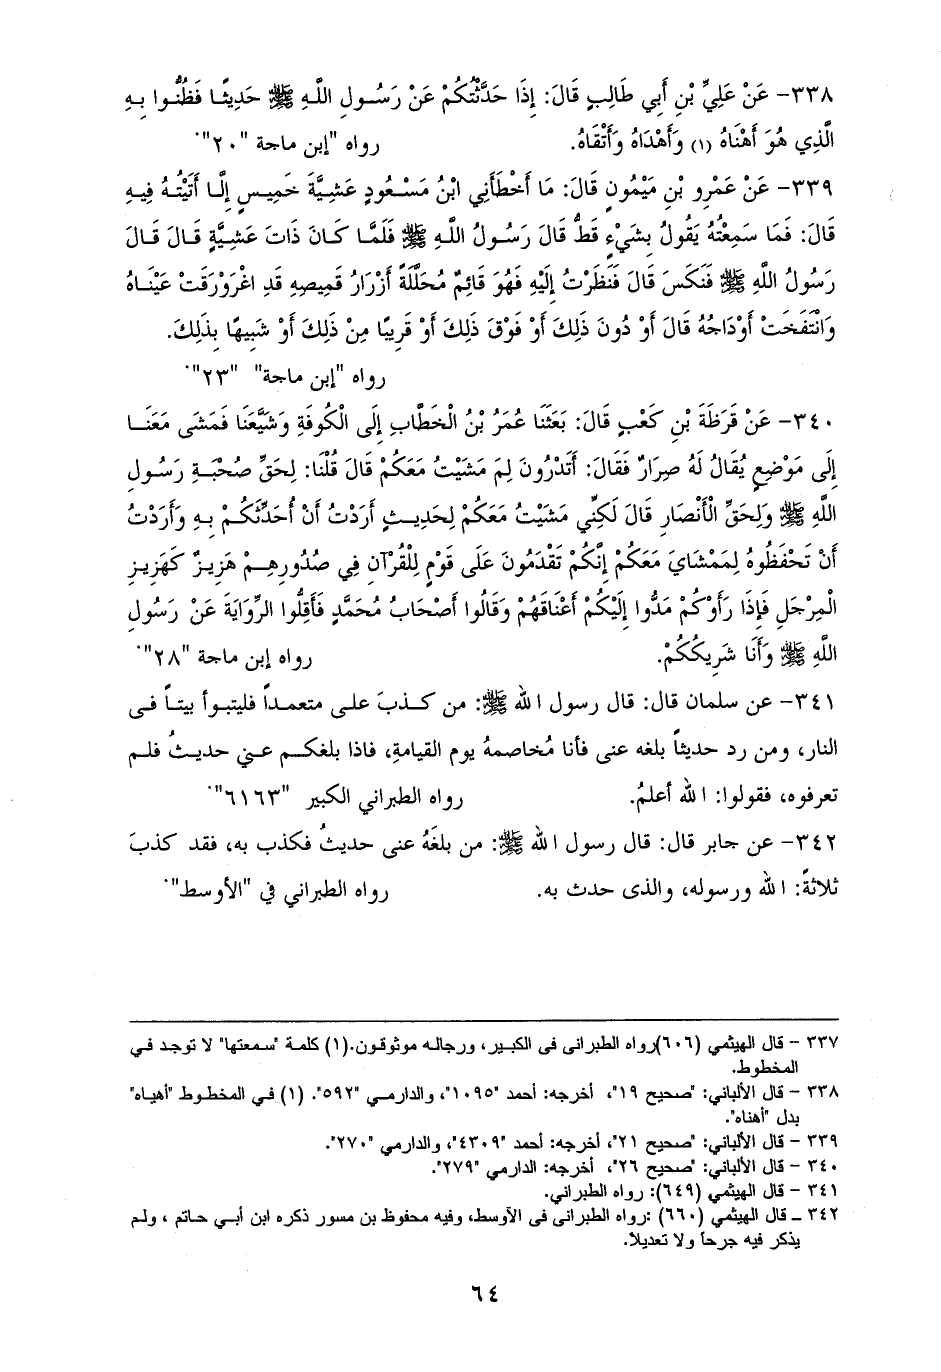 ٣٣٨- عَنْ عَلِيِّ بْنِ أَبِي طَالِبٍ قَالَ: إِذَا حَدَّثْتُكُمْ عَنْ رَسُولِ اللَّهِ ﷺ حَدِيثًا فَظُنُّوا بِهِ
الَّذِي هُوَ أَهْنَاهُ (١) وَأَهْدَاهُ وَأَتْقَاهُ. رواه "إبن ماجة "٢٠".
٣٣٩- عَنْ عَمْرِو بْنِ مَيْمُونٍ قَالَ: مَا أَخْطَأَنِي ابْنُ مَسْعُودٍ عَشِيَّةَ خَمِيسٍ إِلَّا أَتَيْتُهُ فِيهِ
قَالَ: فَمَا سَمِعْتُهُ يَقُولُ بِشَيْءٍ قَطُّ قَالَ رَسُولُ اللَّهِ ﷺ فَلَمَّا كَانَ ذَاتَ عَشِيَّةٍ قَالَ قَالَ
رَسُولُ اللَّهِ ﷺ فَنَكَسَ قَالَ فَنَظَرْتُ إِلَيْهِ فَهُوَ قَائِمٌ مُحَلَّلَةً أَزْرَارُ قَمِيصِهِ قَدِ اغْرَوْرَقَتْ عَيْنَاهُ
وَانْتَفَخَتْ أَوْدَاجُهُ قَالَ أَوْ دُونَ ذَلِكَ أَوْ فَوْقَ ذَلِكَ أَوْ قَرِيبًا مِنْ ذَلِكَ أَوْ شَبِيهًا بِذَلِكَ.
رواه "إبن ماجة" "٢٣".
٣٤٠- عَنْ قَرَظَةَ بْنِ كَعْبٍ قَالَ: بَعَثَنَا عُمَرُ بْنُ الْخَطَّابِ إِلَى الْكُوفَةِ وَشَيَّعَنَا فَمَشَى مَعَنَا
إِلَى مَوْضِعٍ يُقَالُ لَهُ صِرَارٌ فَقَالَ: أَتَدْرُونَ لِمَ مَشَيْتُ مَعَكُمْ قَالَ قُلْنَا: لِحَقِّ صُحْبَةِ رَسُولِ
اللَّهِ ﷺ وَلِحَقِّ الْأَنْصَارِ قَالَ لَكِنِّي مَشَيْتُ مَعَكُمْ لِحَدِيثٍ أَرَدْتُ أَنْ أُحَدِّثَكُمْ بِهِ وَأَرَدْتُ
أَنْ تَحْفَظُوهُ لِمَمْشَايَ مَعَكُمْ إِنَّكُمْ تَقْدَمُونَ عَلَى قَوْمٍ لِلْقُرْآنِ فِي صُدُورِهِمْ هَزِيزٌ كَهَزِيزِ
الْمِرْجَلِ فَإِذَا رَأَوْكُمْ مَدُّوا إِلَيْكُمْ أَعْنَاقَهُمْ وَقَالُوا أَصْحَابُ مُحَمَّدٍ فَأَقِلُّوا الرِّوَايَةَ عَنْ رَسُولِ
اللَّهِ ﷺ وَأَنَا شَرِيكُكُمْ. رواه إبن ماجة "٢٨".
٣٤١- عن سلمان قال: قال رسول الله ﷺ: من كذبَ على متعمداً فليتبوأ بيتاً فى
النار، ومن رد حديثاً بلغه عنى فأنا مُخاصمهُ يوم القيامةِ، فاذا بلغكم عني حديثُ فلم
تعرفوه، فقولوا: الله أعلمُ. رواه الطبراني الكبير "٦١٦٣".
٣٤٢- عن جابر قال: قال رسول الله ﷺ: من بلغَهُ عنى حديثُ فكذب به، فقد كذبَ
ثلاثةً: الله ورسوله، والذى حدث به. رواه الطبراني في "الأوسط".
٣٣٧ - قال الهيثمي (٦٠٦)رواه الطبرانى فى الكبير، ورجاله موثوقون.(١) كلمة "سمعتها" لا توجد في
المخطوط.
٣٣٨ - قال الألباني: "صحيح ١٩"، أخرجه: أحمد "١٠٩٥"، والدارمي "٥٩٢". (١) في المخطوط "أهياه"
بدل "أهناه".
٣٣٩ - قال الألباني: "صحيح ٢١"، أخرجه: أحمد "٤٣٠٩"، والدارمي "٢٧٠".
٣٤٠ - قال الألباني: "صحيح ٢٦"، أخرجه: الدارمي "٢٧٩".
٣٤١ - قال الهيثمي (٦٤٩): رواه الطبراني.
٣٤٢ - قال الهيثمي (٦٦٠) :رواه الطبرانى فى الأوسط، وفيه محفوظ بن مسور ذكره ابن أبي حاتم ، ولم
يذكر فيه جرحاً ولا تعديلاً.
٦٤